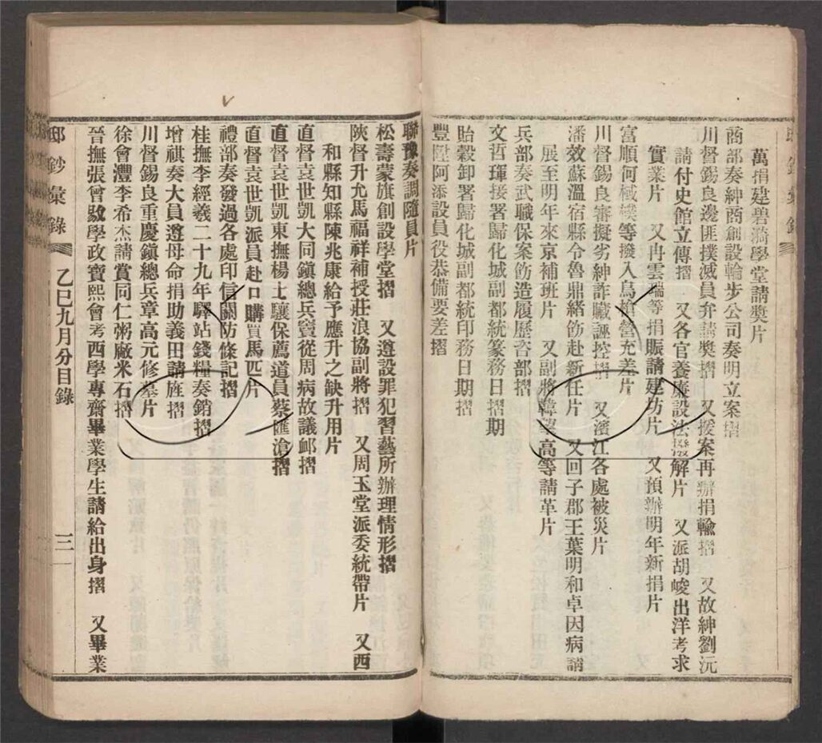 邸鈔彙錄
萬捐建碧漪學堂請獎片
商部奏紳商創設輪步公司奏明立案摺
川督錫良邊匪撲滅員弁請獎摺　又援案再辦捐輸摺　又故紳劉沅
請付史館立傳摺　又各官養廉設法解片　又派胡峻出洋考求
實業片　又冉雲端等捐賑請建坊片　又預辦明年新捐片
富順何棫樸等撥入烏營充差片
川督錫良審擬劣紳詐贓誣控摺　又濱江各處被災片
潘效蘇溫宿縣令魯鼎緒飭赴新任片　又回子郡王葉明和卓因病請
展至明年來京補班片　又副將韓高等請革片
兵部奏武職保案飭造履歷咨部摺
文哲琿接署歸化城副都統篆務日期摺
貽穀卸署歸化城副都統印務日期摺
豐陞阿添設員役恭備要差摺
聯豫奏調隨員片
松壽蒙旗創設學堂摺　又遵設罪犯習藝所辦理情形摺
陝督升允馬福祥補授莊浪協副將摺　又周玉堂派委統帶片　又西
和縣知縣陳兆康給予應升之缺升用片
直督袁世凱大同鎮總兵竇從周病故議卹摺
直督袁世凱東撫楊士驤保薦道員蔡匯滄摺
直督袁世凱派員赴口購買馬匹片
禮部奏發過各處印信關防條記摺
桂撫李經羲二十九年驛站錢糧奏銷摺
增祺奏大員遵母命捐助義田請旌摺
川督錫良重慶鎮總兵章高元修墓片
徐會灃李希杰請賞同仁粥廠米石摺
晉撫張曾敭學政寶熙會考西學專齋畢業學生請給出身摺　又畢業
邸鈔彙錄　乙巳九月分目錄　三